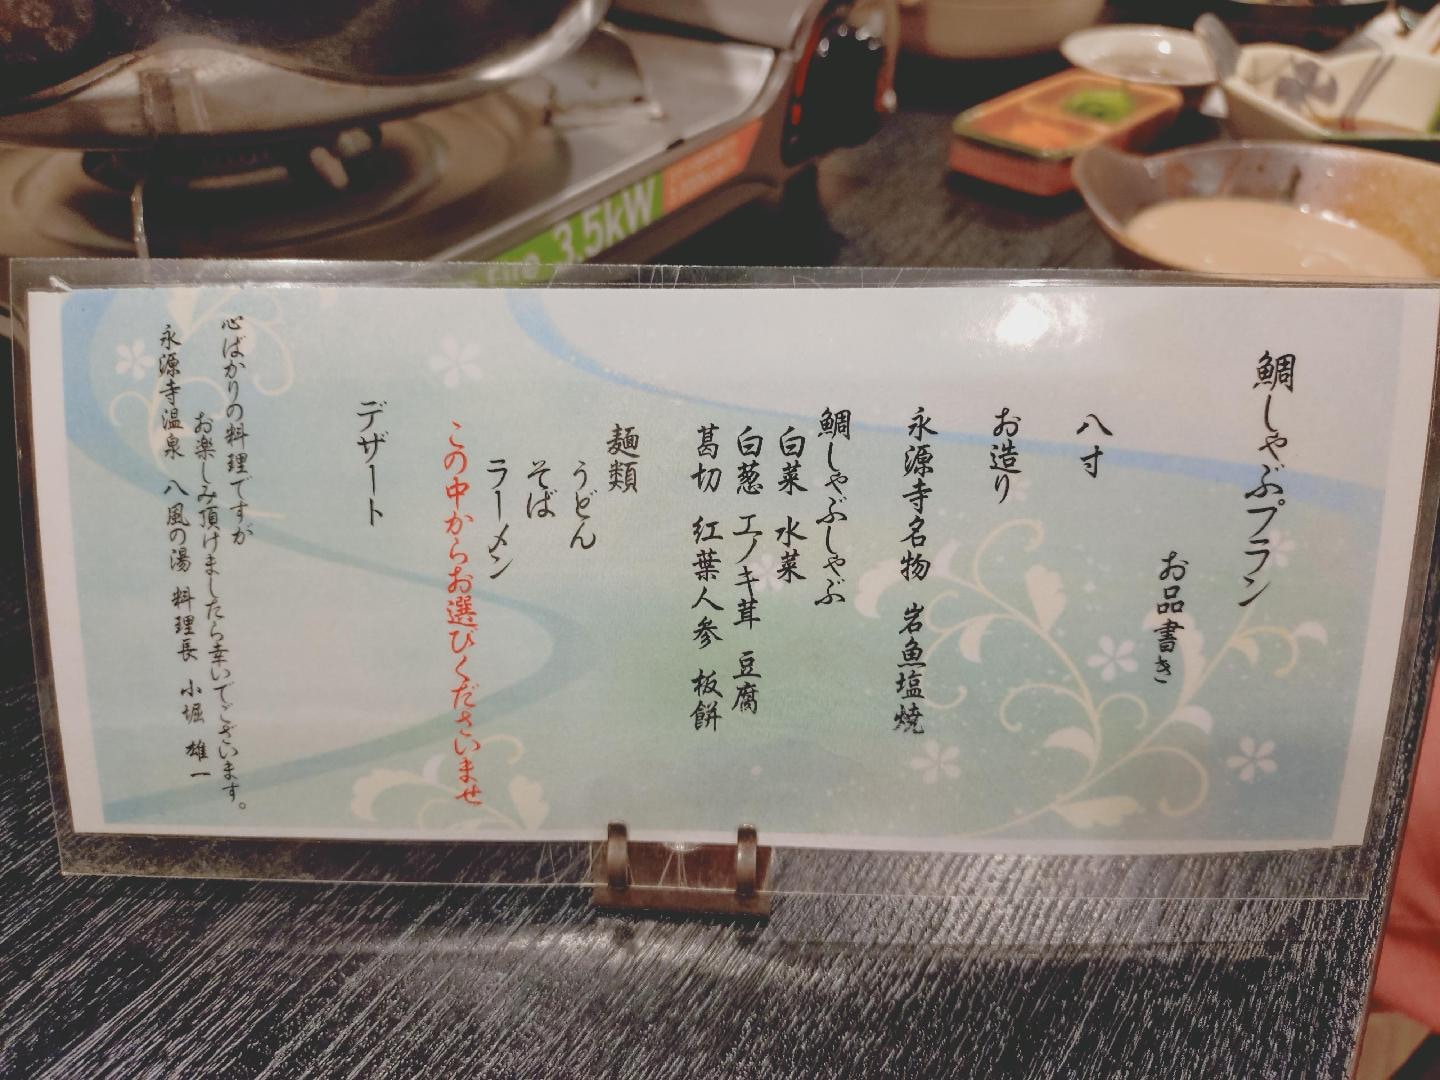 3.5kW
鯛しゃぶプラン
お品書き
八寸
お造り
永源寺名物 岩魚塩焼
鯛しゃぶしゃぶ
白菜 水菜
白葱 エノキ茸 豆腐
葛切 紅葉人参 板餅
麺類
うどん
そば
ラーメン
この中からお選びくださいませ
デザート
心ばかりの料理ですが
お楽しみ頂けましたら幸いでございます。
永源寺温泉 八風の湯 料理長 小堀 雄一